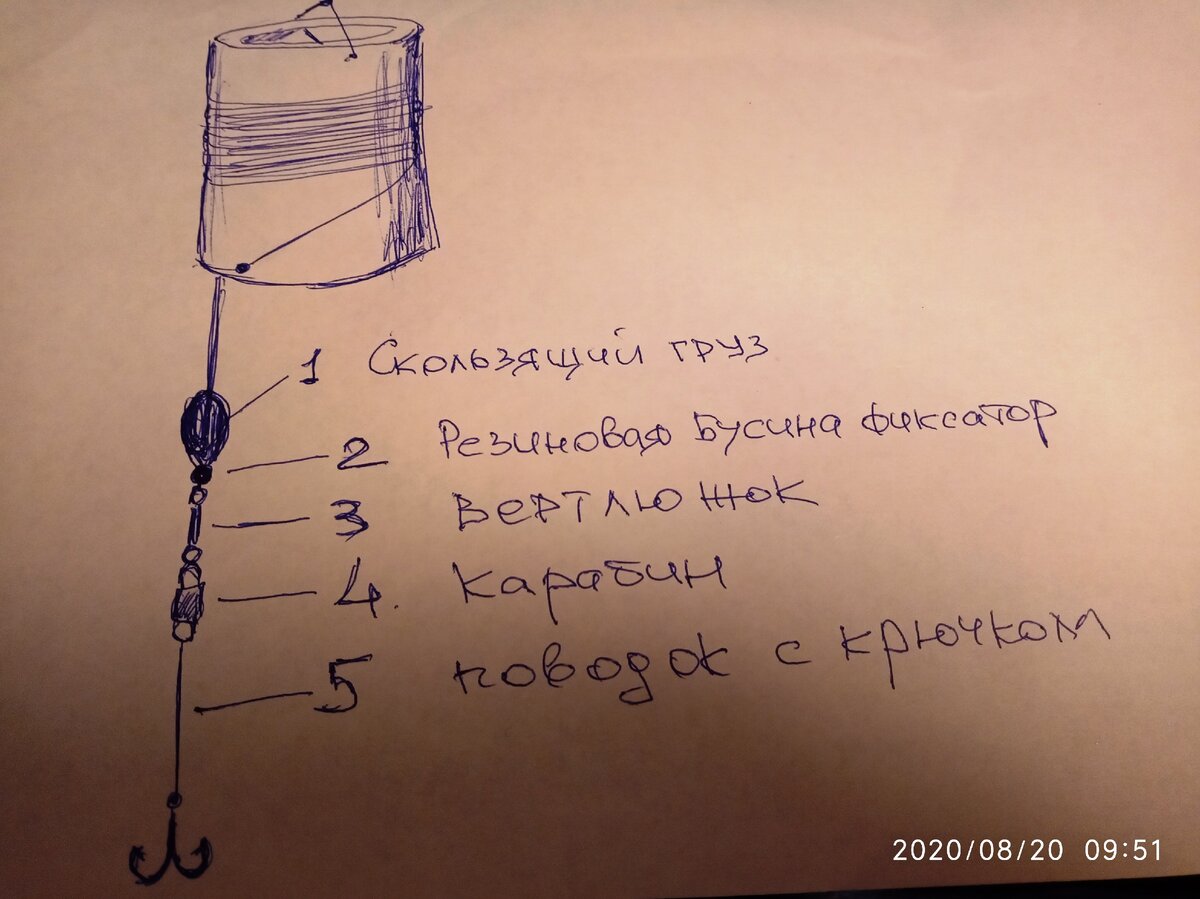 1 Скользящий груз
2 Резиновая Бусина фиксатор
3 Вертлюжок
4. Карабин
5 поводок с крючком
2020/08/20 09:51